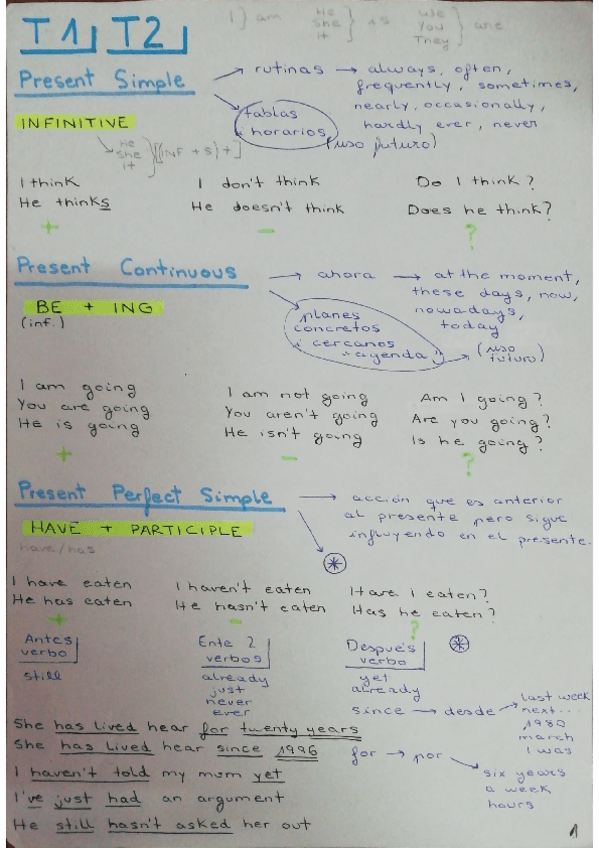 T1 T2
I } am
He
She
It
} is
We
You
They
} are
Present Simple
→ rutinas → always, often,
frequently, sometimes,
nearly, occasionally,
hardly ever, never
tablas
horarios
(uso futuro)
INFINITIVE
He
She
It
} [(INF + s)+]
I think
He thinks
+
I don't think
He doesn't think
-
Do I think?
Does he think?
?
Present Continuous
→ ahora → at the moment,
these days, now,
nowadays,
today
BE + ING
(inf.)
planes
concretos
y cercanos
"agenda"
→ (uso
futuro)
I am going
You are going
He is going
+
I am not going
You aren't going
He isn't going
-
Am I going?
Are you going?
Is he going?
?
Present Perfect Simple
→ acción que es anterior
al presente pero sigue
influyendo en el presente.
HAVE + PARTICIPLE
have/has
I have eaten
He has eaten
+
I haven't eaten
He hasn't eaten
-
Have I eaten?
Has he eaten?
?
Antes
verbo
still
Ente 2
verbos
already
just
never
ever
Después
verbo
yet
already
since → desde
last week
next...
1980
march
I was
for → por
six years
a week
hours
She has lived hear for twenty years
She has lived hear since 1996
I haven't told my mum yet
I've just had an argument
He still hasn't asked her out
1